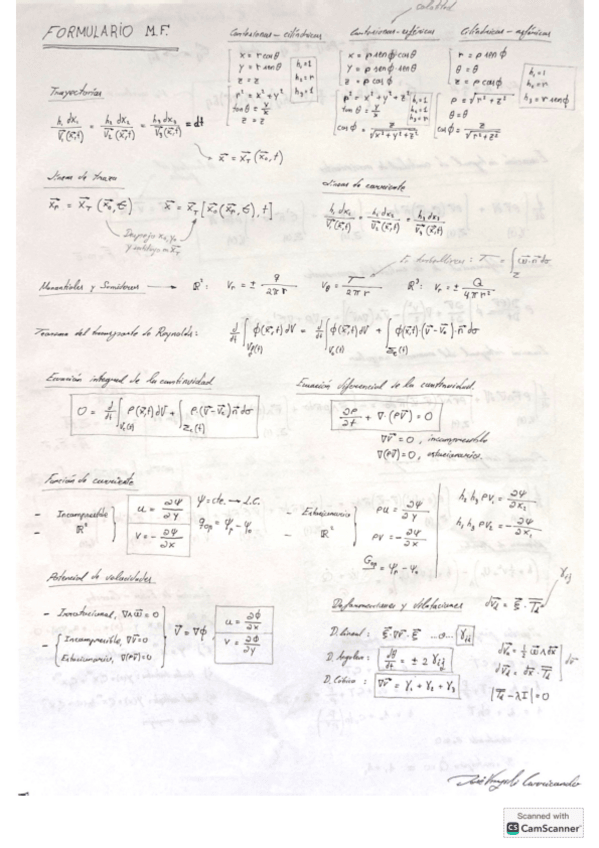 calidad
FORMULARIO M.F.
Cartesianas - cilíndricas
x = r cosθ
y = r senθ
z = z
r² = x² + y²
tanθ = y/x
z = z
h₁ = 1
h₂ = r
h₃ = 1
Cartesianas - esféricas
x = ρ senϕ cosθ
y = ρ senϕ senθ
z = ρ cosϕ
ρ² = x² + y² + z²
tanθ = y/x
cosϕ = z/√(x²+y²+z²)
Cilíndricas - esféricas
r = ρ senϕ
θ = θ
z = ρ cosϕ
ρ = √(r² + z²)
θ = θ
cosϕ = z/√(r²+z²)
h₁ = 1
h₂ = ρ
h₃ = r senϕ
Trayectorias
h₁ dx₁/v₁(x⃗,t) = h₂ dx₂/v₂(x⃗,t) = h₃ dx₃/v₃(x⃗,t) = dt
x⃗ = x⃗_T(x⃗₀,t)
Líneas de traza
x⃗_P = x⃗_T(x⃗₀,t) x⃗ = x⃗_T[x⃗₀(x⃗_P,t),t]
Despejo x₀,y₀
y sustituyo en x⃗_T
Líneas de corriente
h₁ dx₁/v₁(x⃗,t) = h₂ dx₂/v₂(x⃗,t) = h₃ dx₃/v₃(x⃗,t)
Manantiales y Sumideros → ℝ²: v_r = ± q/2πr v_θ = Γ/2πr ℝ³: v_r = ± Q/4πr²
En torbellinos: Γ = ∫_Σ ω⃗·n⃗ dσ
Teorema del transporte de Reynolds: d/dt ∫_{V_f(t)} ϕ(x⃗,t)dV = d/dt ∫_{V_c(t)} ϕ(x⃗,t)dV + ∫_{Σ_c(t)} ϕ(x⃗,t)·(v⃗-v⃗_c)·n⃗ dσ
Ecuación integral de la continuidad
0 = d/dt ∫_{V_c(t)} ρ(x⃗,t)dV + ∫_{Σ_c(t)} ρ·(v⃗-v⃗_c)n⃗ dσ
Ecuación diferencial de la continuidad.
∂ρ/∂t + ∇·(ρv⃗) = 0
∇v⃗ = 0, incompresible
∇(ρv⃗) = 0, estacionario.
Función de corriente
- Incompresible
- ℝ²
u = ∂Ψ/∂y
v = - ∂Ψ/∂x
Ψ = cte. → L.C.
q_op = Ψ_P - Ψ₀
- Estacionario
- ℝ²
ρu = ∂Ψ/∂y
ρv = - ∂Ψ/∂x
G_op = Ψ_P - Ψ₀
h₂ h₃ ρV₁ = ∂Ψ/∂x₂
h₁ h₃ ρV₂ = - ∂Ψ/∂x₁
Potencial de velocidades
- Irrotacional, ∇∧ω⃗ = 0
- Incompresible, ∇v⃗ = 0
Estacionario, ∇(ρv⃗) = 0
v⃗ = ∇ϕ
u = ∂ϕ/∂x
v = ∂ϕ/∂y
Deformaciones y dilataciones
D. Lineal:
D. Angular: dθ/dt = ± 2 γ_ij
D. Cúbica: ∇v⃗ = γ₁ + γ₂ + γ₃
γ_ij
dv⃗_R = ½ ω⃗∧dx⃗
|T_d - λI| = 0
Scanned with
CS CamScanner